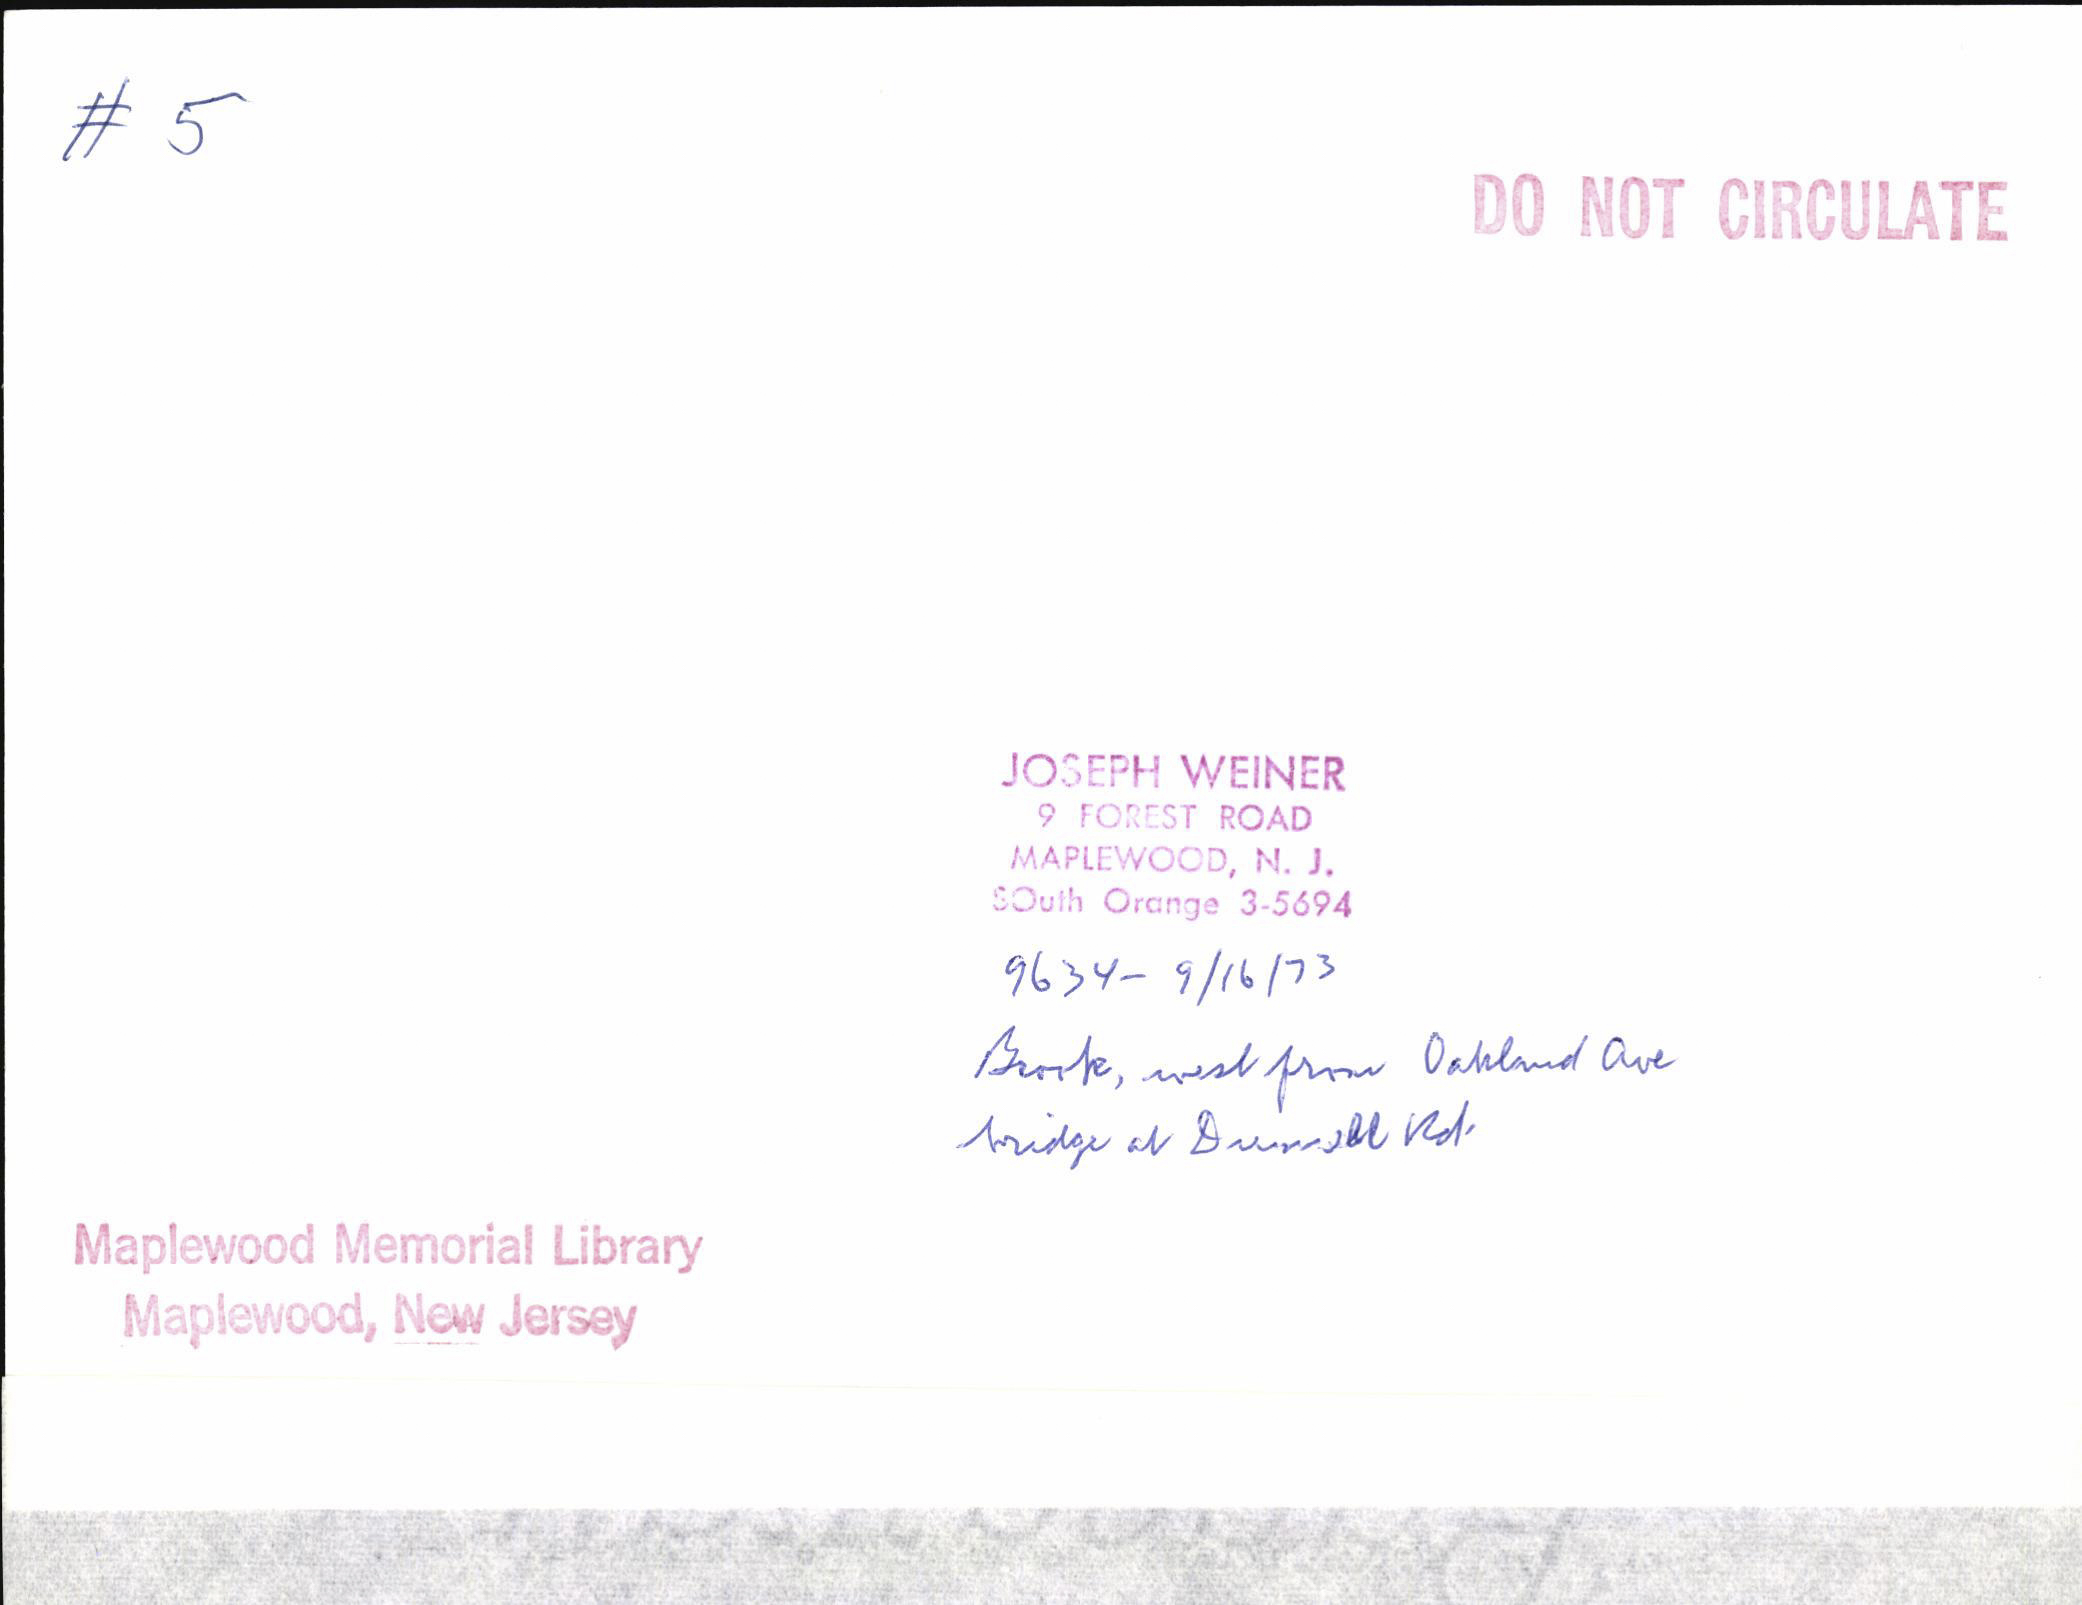 # 5
DO NOT CIRCULATE
JOSEPH WEINER
9 FOREST ROAD
MAPLEWOOD, N. J.
SOuth Orange 3-5694
9634- 9/16/73
Brook, west from Oakland Ave
bridge at Dunnell Rd.
Maplewood Memorial Library
Maplewood, New Jersey